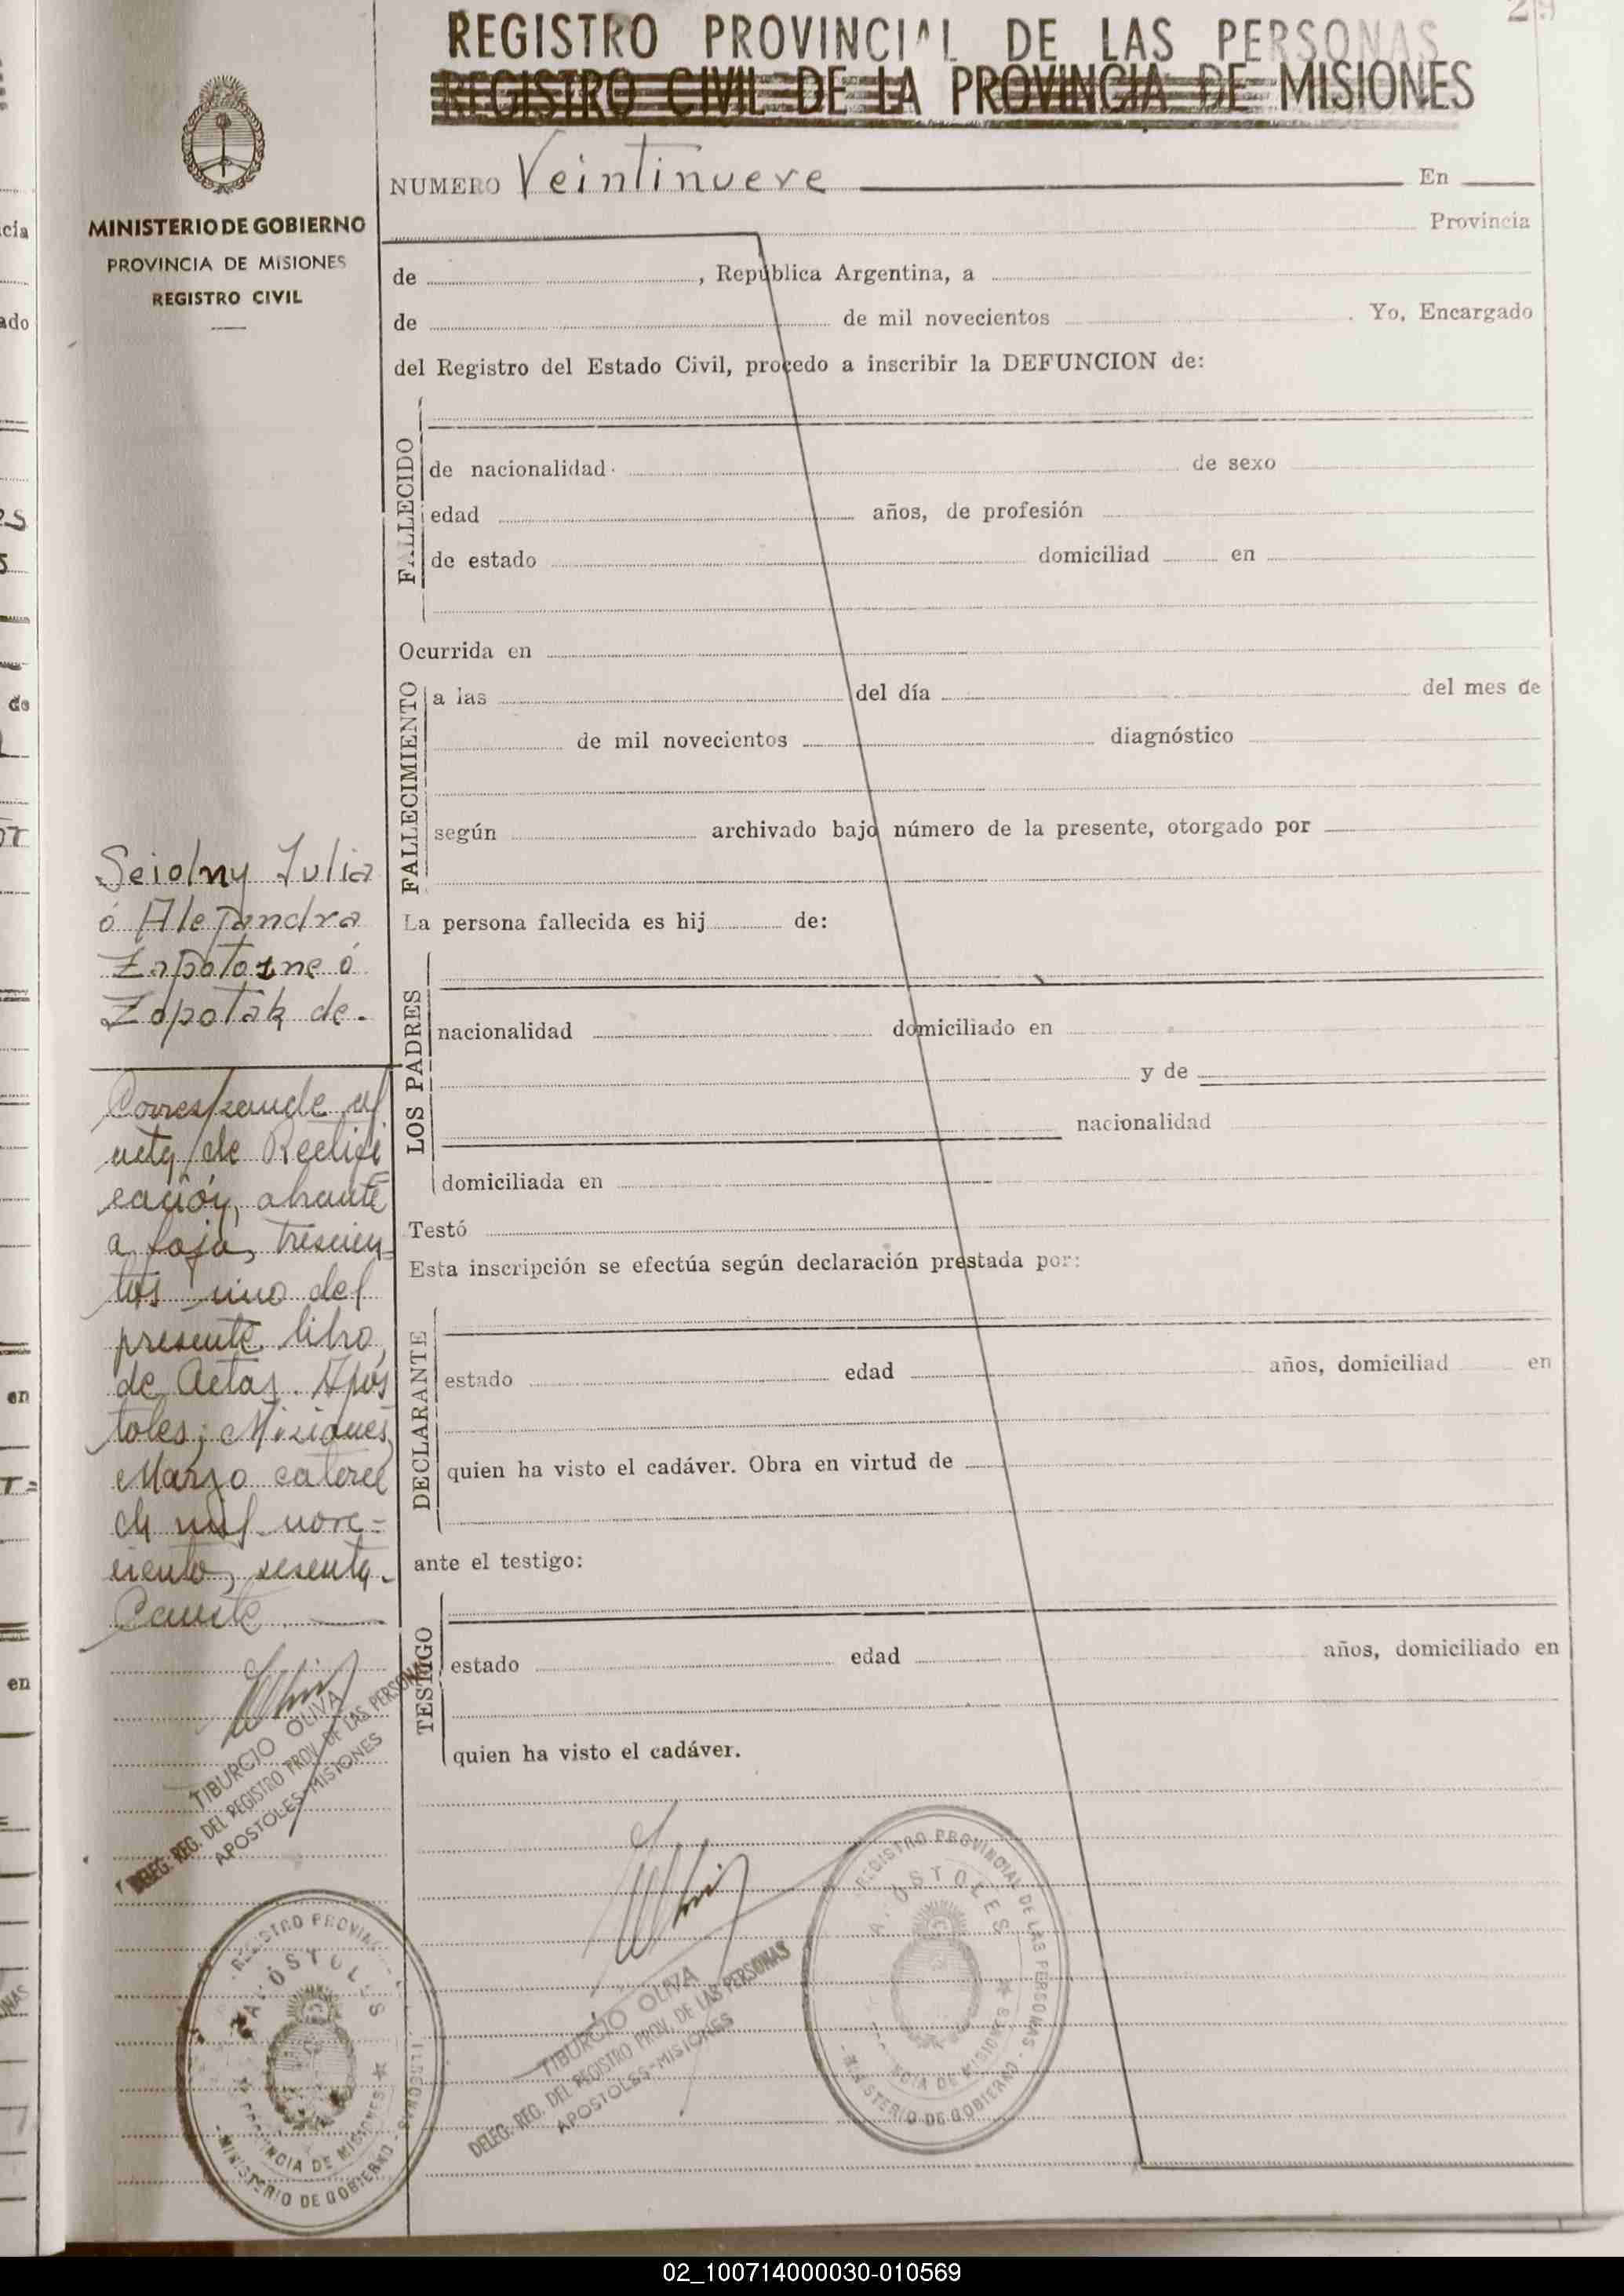 29
REGISTRO PROVINCIAL DE LAS PERSONAS
REGISTRO CIVIL DE LA PROVINCIA DE MISIONES
MINISTERIO DE GOBIERNO
PROVINCIA DE MISIONES
REGISTRO CIVIL
NUMERO Veintinueve En
Provincia
de , República Argentina, a
de de mil novecientos . Yo, Encargado
del Registro del Estado Civil, procedo a inscribir la DEFUNCION de:
FALLECIDO
de nacionalidad de sexo
edad años, de profesión
de estado domiciliad en
Ocurrida en
FALLECIMIENTO
a las del día del mes de
de mil novecientos diagnóstico
según archivado bajo número de la presente, otorgado por
La persona fallecida es hij de:
LOS PADRES
nacionalidad domiciliado en
y de
nacionalidad
domiciliada en
Testó
Esta inscripción se efectúa según declaración prestada por:
DECLARANTE
estado edad años, domiciliad en
quien ha visto el cadáver. Obra en virtud de
ante el testigo:
TESTIGO
estado edad años, domiciliado en
quien ha visto el cadáver.
Seiolny Julia
ó Alejandra
ó
Zapotak de.
Corresponde al
acta de Rectifi
cación, obrante
a foja, trescien-
tos uno del
presente libro,
de Actas. Após
toles; Misiones,
Marzo catorce
de mil nove=
ciento, sesenta.
Conste.
TIBURCIO OLIVA
DELEG. REG. DEL REGISTRO PROV. DE LAS PERSONAS
APOSTOLES-MISIONES
REGISTRO PROVINCIAL DE LAS PERSONAS
APÓSTOLES
PROVINCIA DE MISIONES
MINISTERIO DE GOBIERNO
TIBURCIO OLIVA
DELEG. REG. DEL REGISTRO PROV. DE LAS PERSONAS
APOSTOLES-MISIONES
REGISTRO PROVINCIAL DE LAS PERSONAS
APÓSTOLES
PROVINCIA DE MISIONES
MINISTERIO DE GOBIERNO
02_100714000030-010569